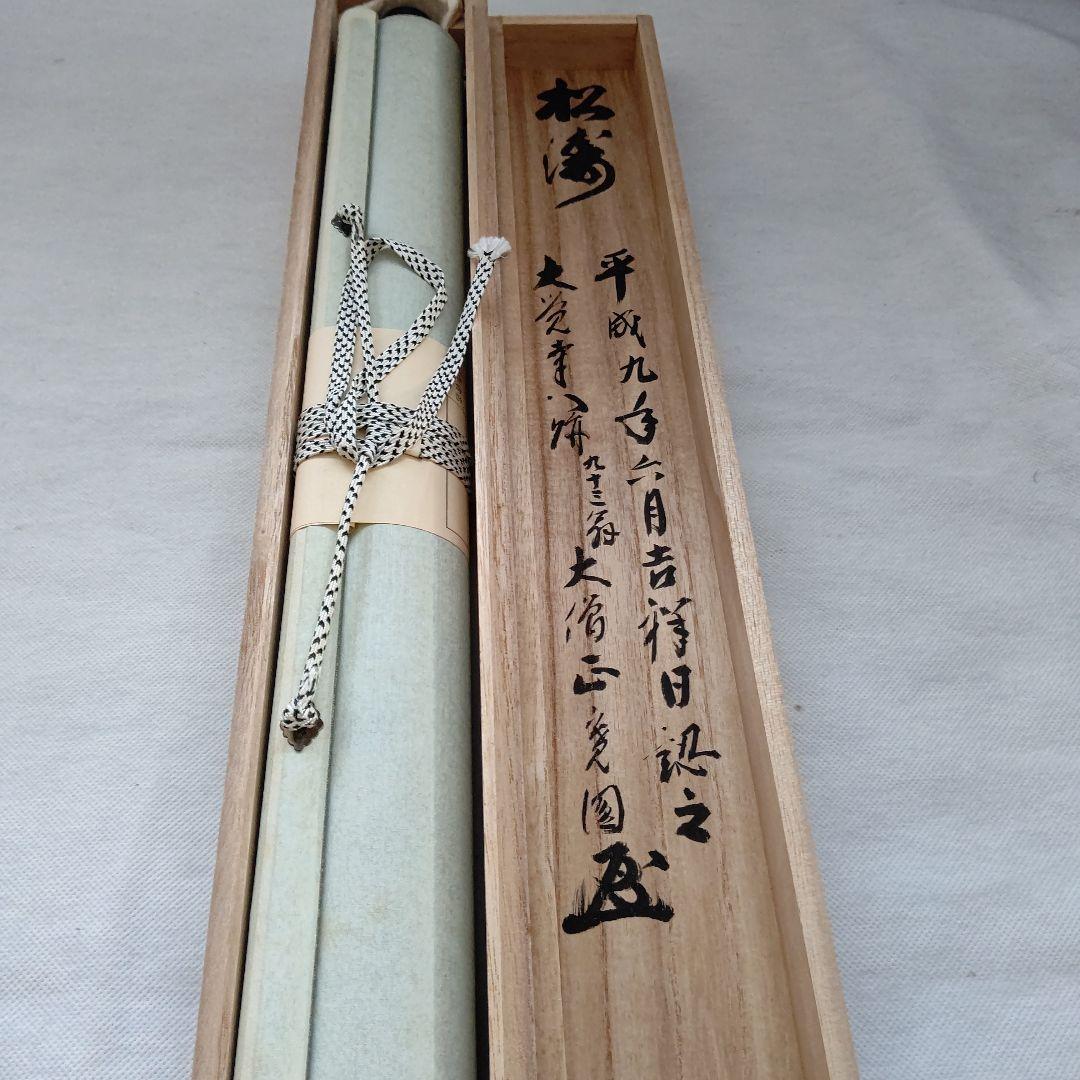 松濤
平成九年六月吉祥日認之
大覚寺八
九十三翁
大僧正寛園